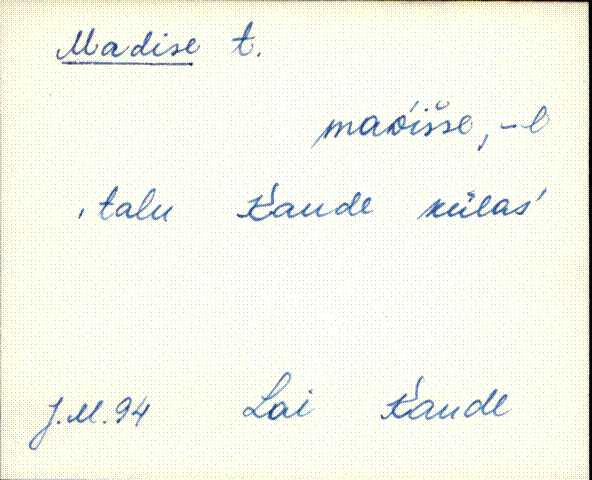 Madise t.
maðišse, -l
, talu Kaude külas
J.M.94 Lai Kaude